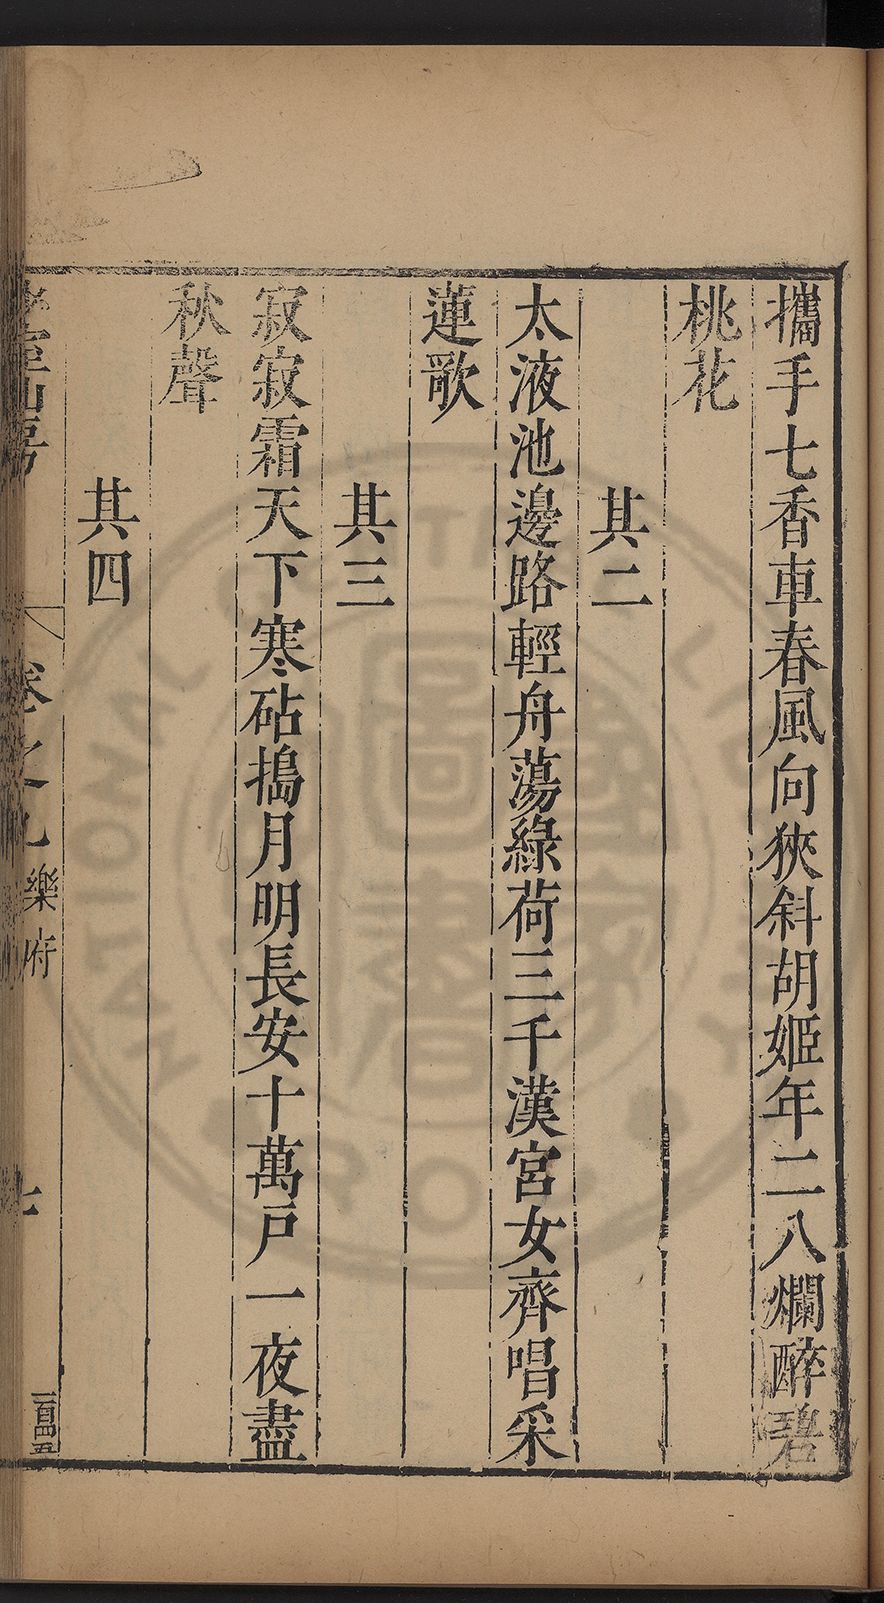 攜手七香車春風向狹斜胡姬年二八爛醉碧
桃花
其二
太液池邊路輕舟蕩綠荷三千漢宮女齊唱采
蓮歌
其三
寂寂霜天下寒砧搗月明長安十萬戶一夜盡
秋聲
其四
山房
卷之九
樂府
七
一百四五